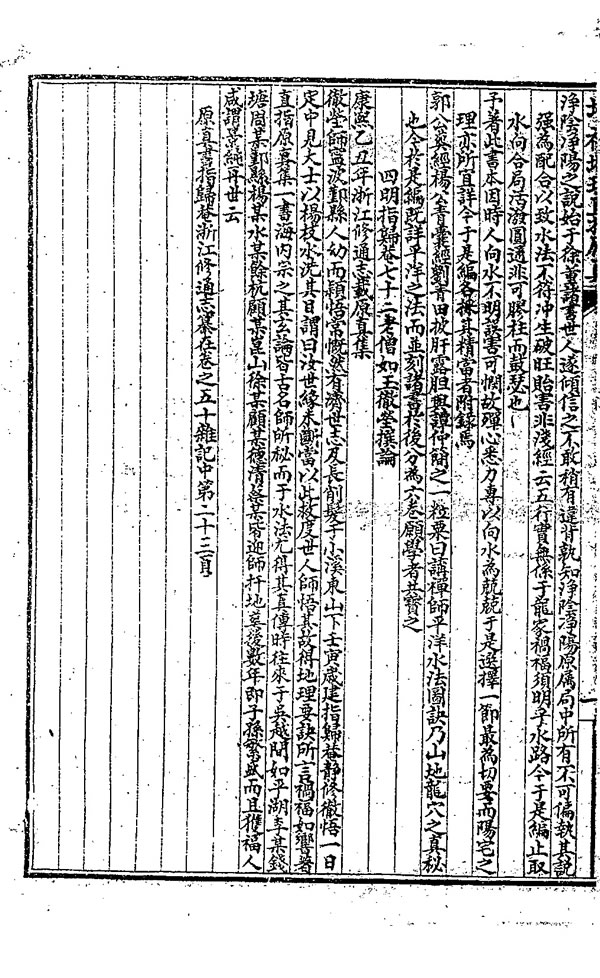 淨陰淨陽之說始于徐董諸書世人遂傾信之不敢稍有違背孰知淨陰淨陽原屬局中所有不可偏執其說
強為配合以致水法不符冲生破旺貽害非淺經云五行實無係于龍家禍福須明乎水路今于是編止取
水向合局活潑圓通非可膠柱而鼓瑟也
予著此書本因時人向水不明誤害可憫故殫心悉力專以向水為兢兢于是選擇一節最為切要而陽宅之
理亦所宜詳今于是編各採其精當者附錄焉
郭公葬經楊公青囊經劉青田披肝露胆與譚仲簡之一粒粟曰講禪師平洋水法圖訣乃山地龍穴之真秘
也今於是編既詳平洋之法而並刻諸書於後分為六卷願學者共寶之
四明指歸菴七十二老僧如玉徹瑩撰論
康熙乙丑年浙江修通志載原真集
徹瑩師寧波鄞縣人幼而穎悟常慨然有濟世志及長削髮于小溪東山下壬寅歲建指歸菴靜修徹悟一日
定中見大士以楊枝水洗其目謂曰汝世緣未斷當以此救度世人師悟其故得地理要訣所言禍福如響著
直指原真集一書海內宗之其玄論皆古名師所秘而于水法尤得其真傳時往來于吳越間如平湖李某錢
塘周某鄞縣楊某水某餘杭顧某崑山徐某顧某德清蔡某皆迎師扦地葬後數年即子孫繁盛而且獲福人
咸謂景純再世云
原真書指歸菴浙江修通志纂在卷之五十雜記中第二十三頁